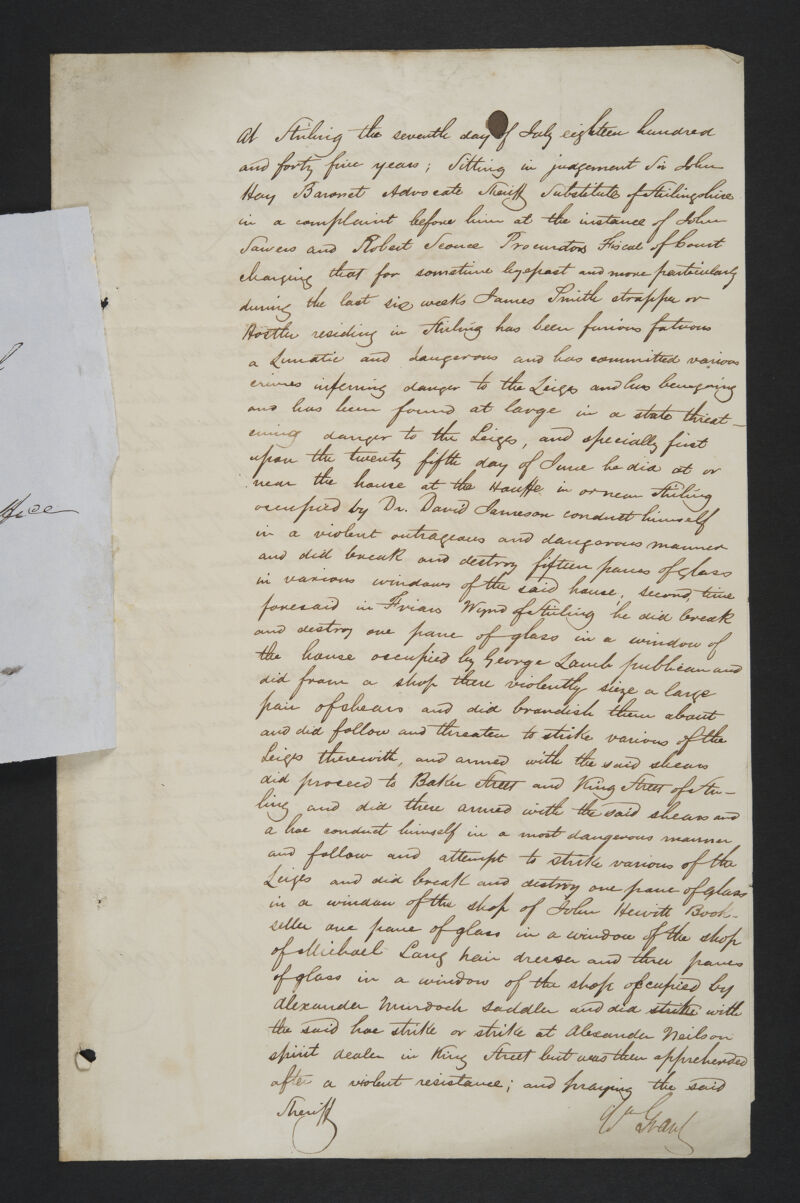 At Stirling the seventh day of July eighteen hundred
and forty five years; Sitting in judgement Sir John
Hay Baronet Advocate Sheriff Substitute of Stirlingshire
in a complaint before him at the instance of John
Sawers and Robert Sconce Procurators Fiscal of Court
charging that for sometime bypast and more particularly
during the last six weeks James Smith strapper or
Hostler residing in Stirling has been furious fatuous
a Lunatic and dangerous and has committed various
crimes inferring danger to the Leiges and has been going
and has been found at large in a state threat-
ening danger to the Leiges, and specially first
upon the twenty fifth day of June he did at or
near the house at the Hauffe in or near Stirling
occupied by Dr. David Jameson conduct himself
in a violent outrageous and dangerous manner
and did break and destroy fifteen panes of glass
in various windows of the said house; second, time
foresaid in Friars Wynd of Stirling he did break
and destroy one pane of glass in a window of
the house occupied by George Lamb publican and
did from a shop there violently sieze a large
pair of shears and did brandish them about
and did follow and threaten to strike various of the
Leiges therewith, and armed with the said shears
did proceed to Baker Street and King Street of Stir-
ling and did there armed with the said shears and
a hoe conduct himself in a most dangerous manner
and follow and attempt to strike various of the
Leiges and did break and destroy one pane of glass
in a window of the shop of John Hewitt Book-
seller one pane of glass in a window of the shop
of Michael Lang hair dresser and three panes
of glass in a window of the shop occupied by
Alexander Murdoch saddler and did strike with
the said hoe strike or strike at Alexander Neilson
spirit dealer in King Street but was then apprehended
after a violent resistance; and praying the said
Sheriff
Grant